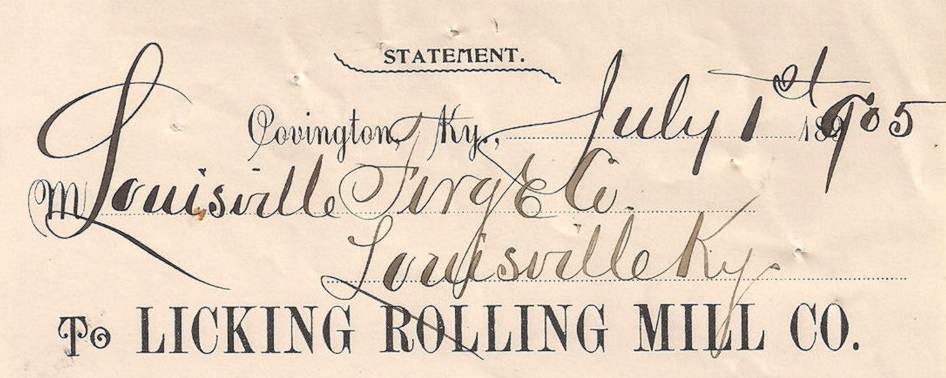 STATEMENT.
Covington, Ky., July 1st 1905
M Louisville Firg & Co.
Louisville Ky.
To LICKING ROLLING MILL CO.